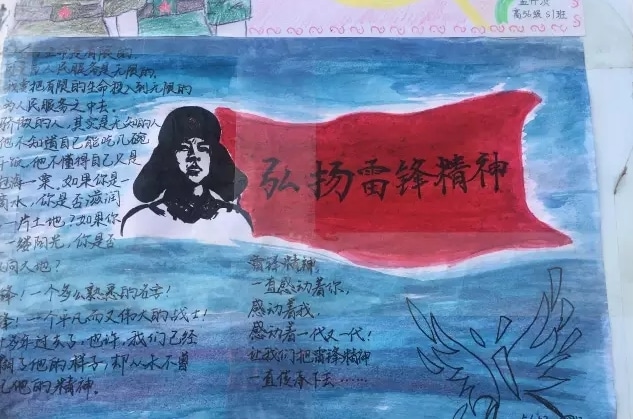 高56级51班
民服务是无限的,
我要把有限的生命投入到无限的
为人民服务之中去。
骄傲的人,其实是无知的人
他不知道自己能吃几碗
干饭,他不懂得自己只是
沧海一粟,如果你是
滴水,你是否滋润
一片土地?如果你
一缕阳光,你是否
弘扬雷锋精神
锋!一个多么熟悉的名字!
锋!一个平凡而又伟大的战士!
年过去了,也许,我们已经
了他的样子,却从未不曾
他的精神.
雷锋精神
一直感动着你,
感动着我,
感动着一代又一代!
让我们把雷锋精神
一直传承下去……